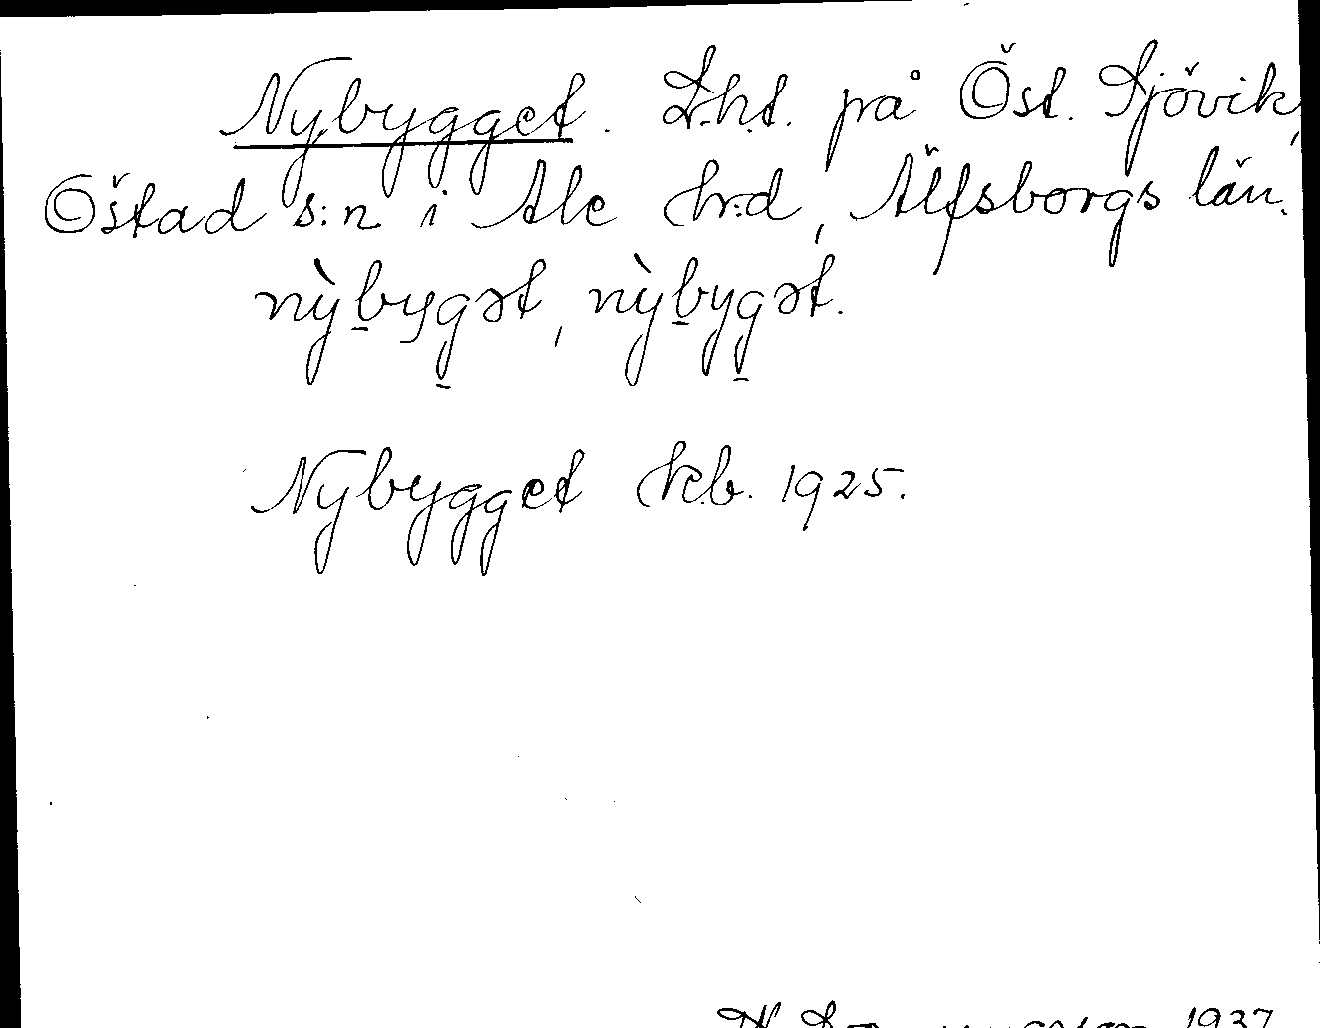 Nybygget. L.h.t. på Öst. Sjövik,
Östad s:n i Ale hr:d, Älfsborgs län.
nỳb̠yg̠ət, nỳb̠yg̠ət.
Nybygget Jr.b. 1925.
1937